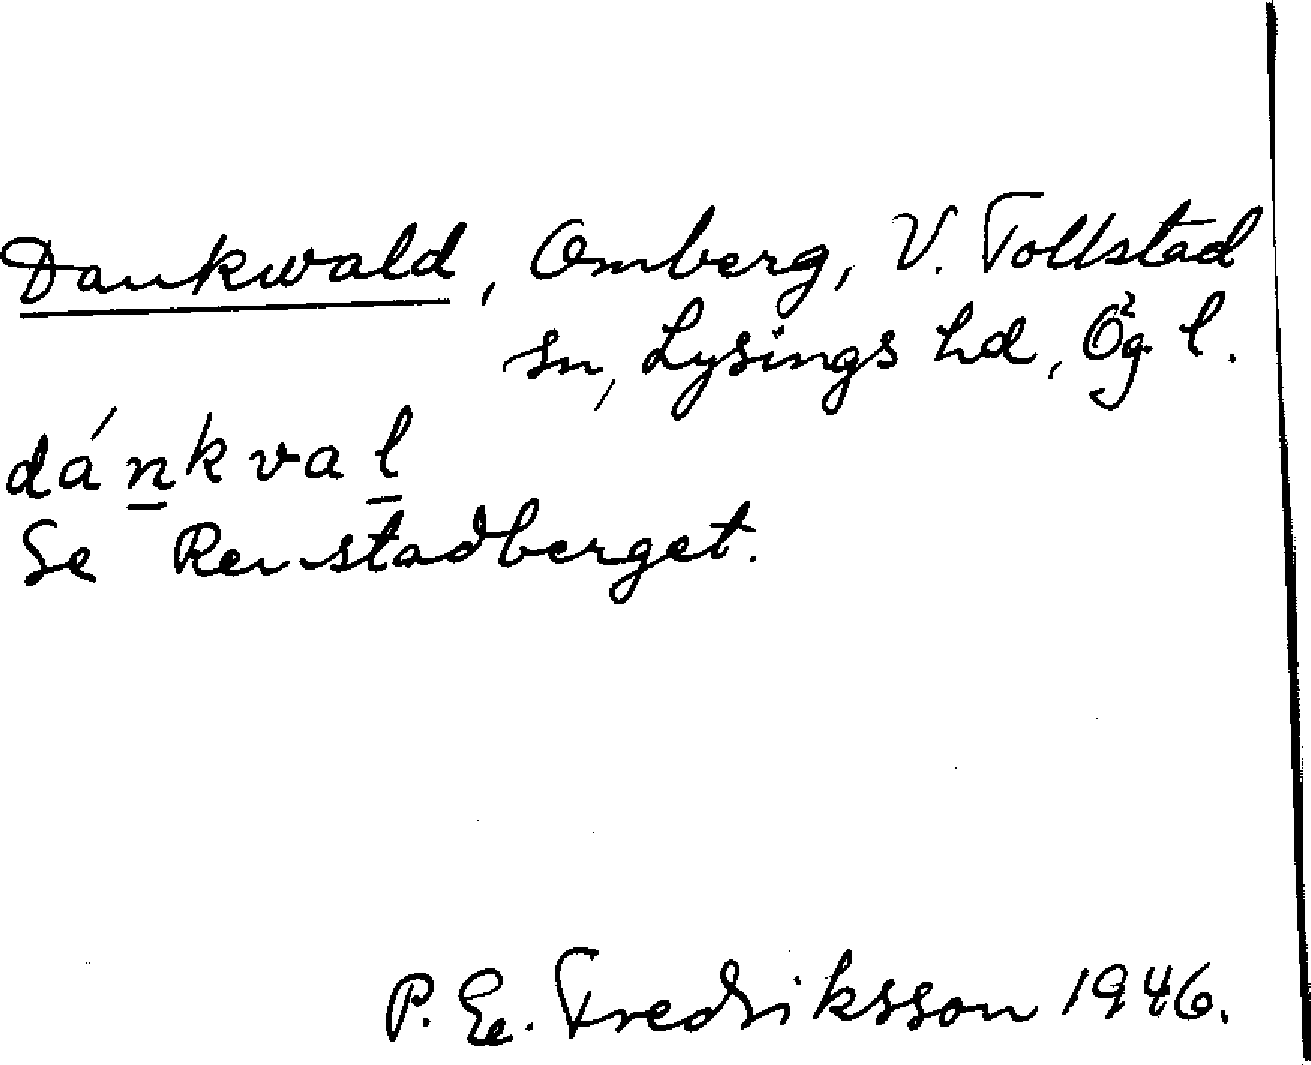 Dankwald, Omberg, V. Tollstad
sn, Lysings hd, Ög l.
dánkval
Se Renstadberget.
P. E. Fredriksson 1946.